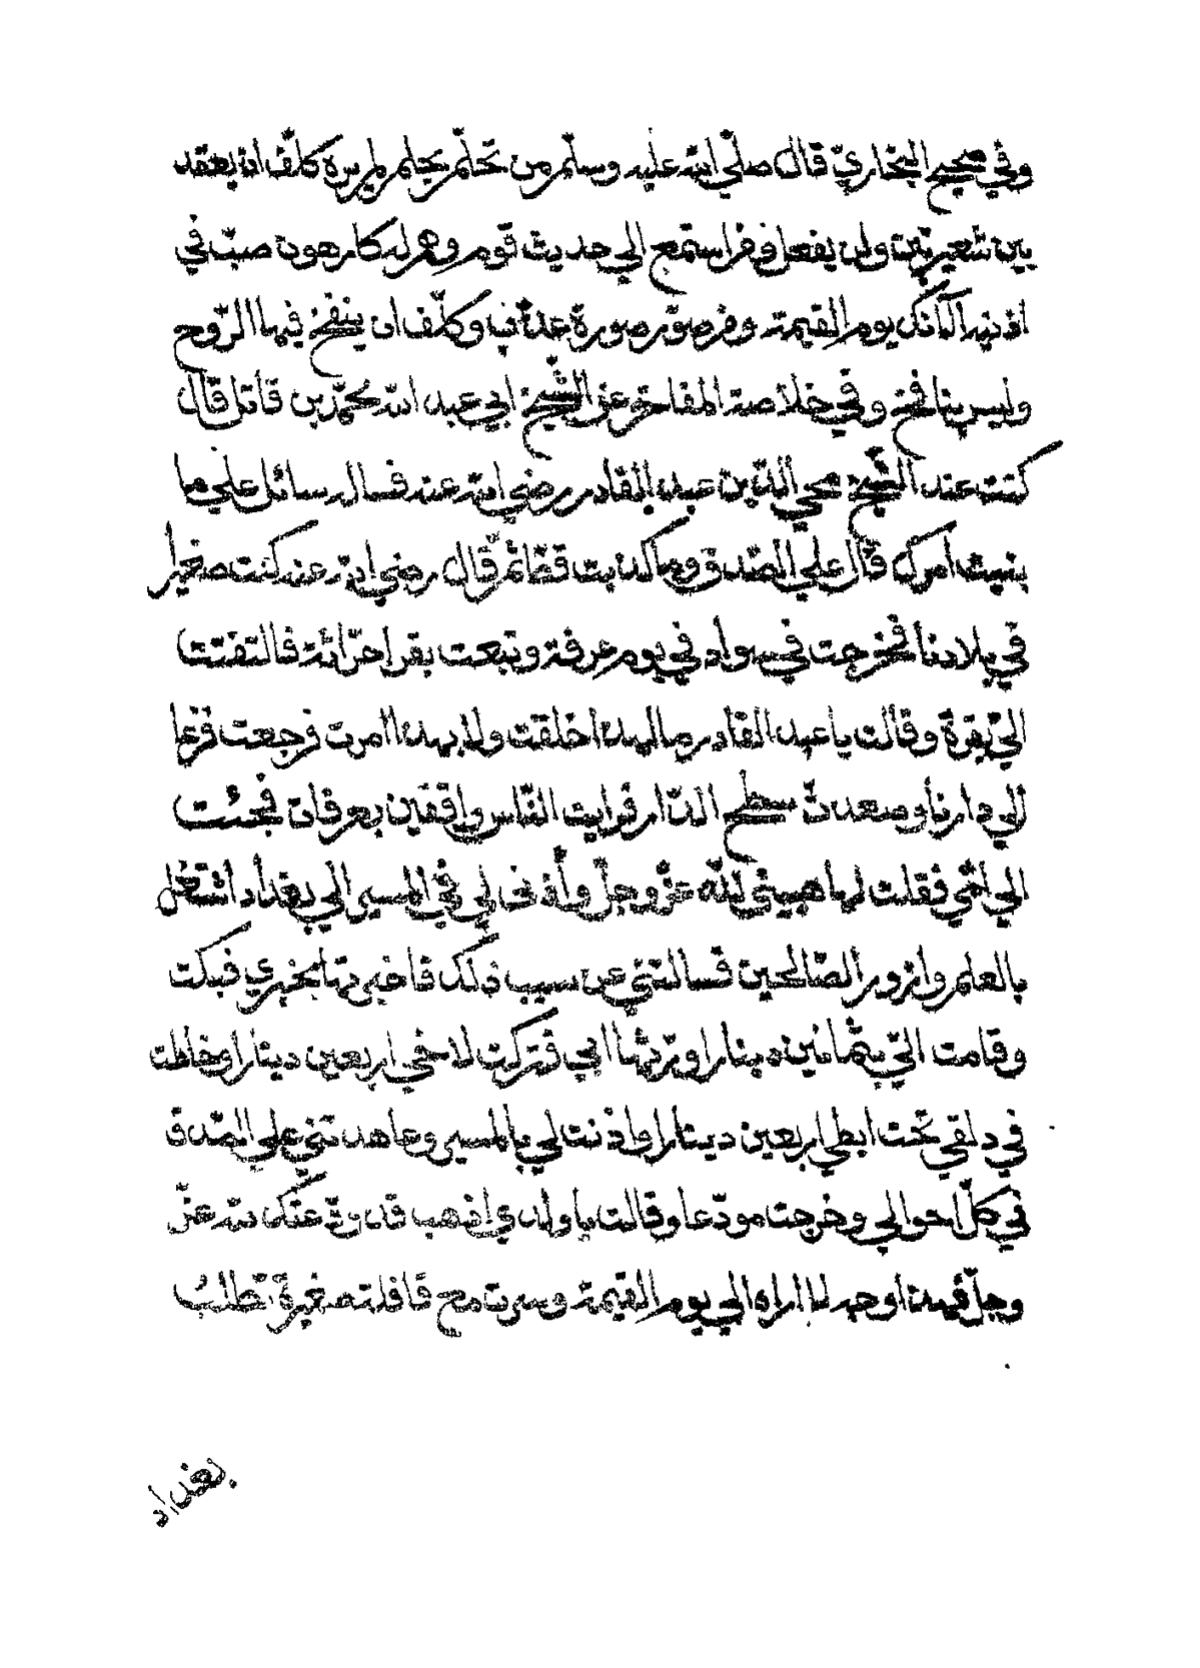 وفي صحيح البخاريّ قال صلّي الله عليه وسلّم من تحلّم بحلم لم يره كلّف ان يعقد
بين شعيرتين ولن يفعل ومن استمع الي حديث قوم وهم له كارهون صبّ في
اذنيه الآنك يوم القيمة ومن صوّر صورة عذّب وكلّف ان ينفخ فيها الرّوح
وليس بنافخ وفي خلاصة المفاخر عن الشّيخ ابي عبد الله محمّد بن قائل قال
كنت عند الشّيخ محي الدّين عبد القادر رضي الله عنه فساله سائل علي ما
بنيت امرك قال علي الصّدق وما كذبت قطّ ثمّ قال رضي الله عنه كنت صغيرا
في بلادنا فخرجت في سواد في يوم عرفة وتبعت بقر احرّاثة فالتفتت
اليّ بقرة وقالت يا عبد القادر ما لهذا خلقت ولا بهذا امرت فرجعت فزعا
الي دارنا وصعدت سطح الدّار فرايت النّاس واقفين بعرفات فجئت
الي امّي فقلت لها هبيني لله عزّ وجلّ وأذني لي في المسير الي بغداد اشتغل
بالعلم وازور الصّالحين فسالتني عن سبب ذلك فاخبرتها بخبري فبكت
وقامت اليّ بثمانين دينارا ورّثها ابي فتركت لاخي اربعين دينارا وخاطت
في دلقي تحت ابطي اربعين دينارا واذنت لي بالمسير وعاهدتني علي الصّدق
في كلّ احوالي وخرجت مودّعا وقالت يا ولدي اذهب قد عنك لله عزّ
وجلّ فهذا وجه لا اراه الي يوم القيمة وسرت مع قافلة صغيرة تطلب
بغداد